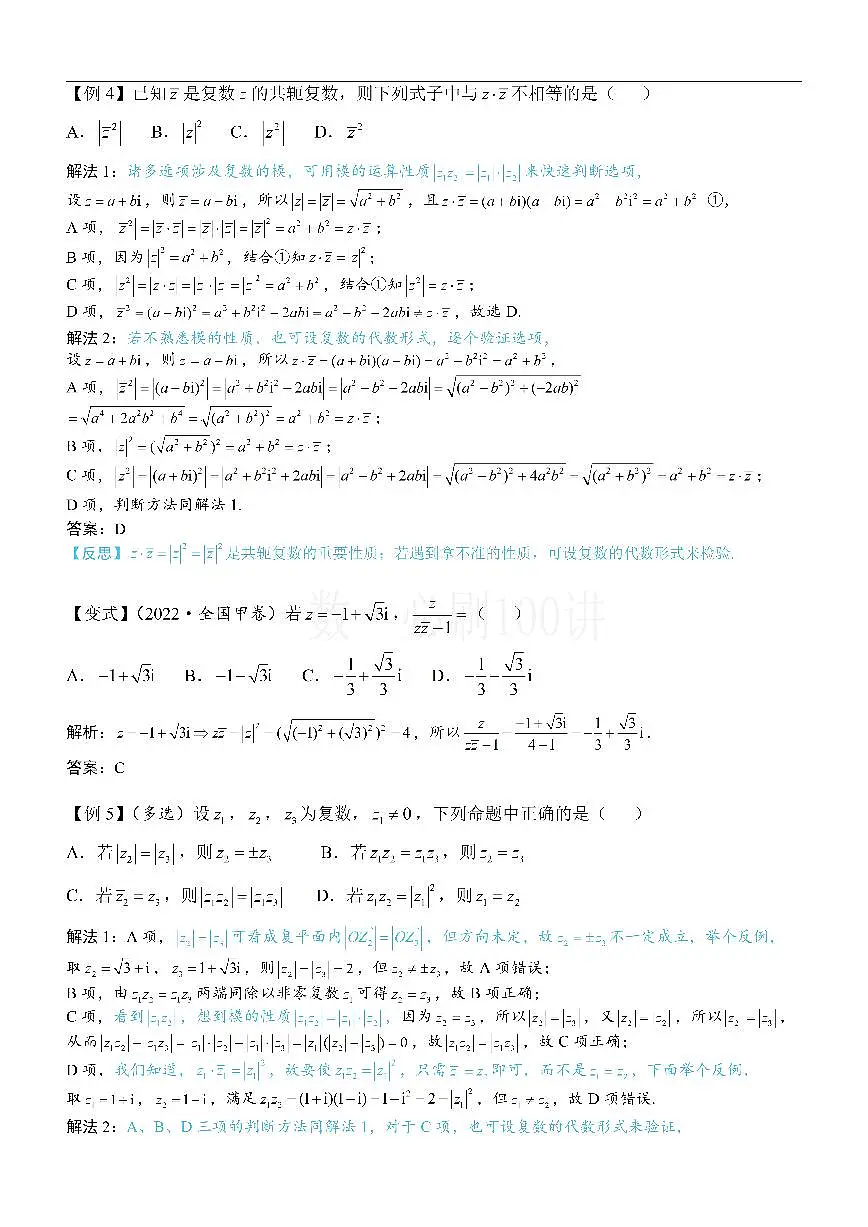 【例4】已知z̄是复数z的共轭复数，则下列式子中与z·z̄不相等的是（ ）
A．|z̄²| B．|z|² C．|z²| D．z̄²
解法1：诸多选项涉及复数的模，可用模的运算性质|z₁z₂|=|z₁|·|z₂|来快速判断选项，
设z=a+bi，则z̄=a-bi，所以|z|=|z̄|=√(a²+b²)，且z·z̄=(a+bi)(a-bi)=a²-b²i²=a²+b² ①，
A项，|z̄²|=|z̄·z̄|=|z̄|·|z̄|=|z̄|²=a²+b²=z·z̄；
B项，因为|z|²=a²+b²，结合①知z·z̄=|z|²；
C项，|z²|=|z·z|=|z|·|z|=|z|²=a²+b²，结合①知|z²|=z·z̄；
D项，z̄²=(a-bi)²=a²+b²i²-2abi=a²-b²-2abi≠z·z̄，故选D.
解法2：若不熟悉模的性质，也可设复数的代数形式，逐个验证选项，
设z=a+bi，则z̄=a-bi，所以z·z̄=(a+bi)(a-bi)=a²-b²i²=a²+b²，
A项，|z̄²|=|(a-bi)²|=|a²+b²i²-2abi|=|a²-b²-2abi|=√((a²-b²)²+(-2ab)²)
=√(a⁴+2a²b²+b⁴)=√((a²+b²)²)=a²+b²=z·z̄；
B项，|z|²=(√(a²+b²))²=a²+b²=z·z̄；
C项，|z²|=|(a+bi)²|=|a²+b²i²+2abi|=|a²-b²+2abi|=√((a²-b²)²+4a²b²)=√((a²+b²)²)=a²+b²=z·z̄；
D项，判断方法同解法1.
答案：D
【反思】z·z̄=|z|²=|z̄|²是共轭复数的重要性质；若遇到拿不准的性质，可设复数的代数形式来检验.
【变式】（2022·全国甲卷）若z=-1+√3i，z/(zz̄-1)=（ ）
A．-1+√3i B．-1-√3i C．-1/3+√3/3i D．-1/3-√3/3i
解析：z=-1+√3i⇒zz̄=|z|²=(√((-1)²+(√3)²))²=4，所以z/(zz̄-1)=(-1+√3i)/(4-1)=-1/3+√3/3i.
答案：C
【例5】（多选）设z₁，z₂，z₃为复数，z₁≠0，下列命题中正确的是（ ）
A．若|z₂|=|z₃|，则z₂=±z₃ B．若z₁z₂=z₁z₃，则z₂=z₃
C．若z̄₂=z₃，则|z₁z₂|=|z₁z₃| D．若z₁z₂=|z₁|²，则z₁=z₂
解法1：A项，|z₂|=|z₃|可看成复平面内|OZ₂|=|OZ₃|，但方向未定，故z₂=±z₃不一定成立，举个反例，
取z₂=√3+i，z₃=1+√3i，则|z₂|=|z₃|=2，但z₂≠±z₃，故A项错误；
B项，由z₁z₂=z₁z₃两端同除以非零复数z₁可得z₂=z₃，故B项正确；
C项，看到|z₁z₂|，想到模的性质|z₁z₂|=|z₁|·|z₂|，因为z̄₂=z₃，所以|z̄₂|=|z₃|，又|z̄₂|=|z₂|，所以|z₂|=|z₃|，
从而|z₁z₂|-|z₁z₃|=|z₁|·|z₂|-|z₁|·|z₃|=|z₁|(|z₂|-|z₃|)=0，故|z₁z₂|=|z₁z₃|，故C项正确；
D项，我们知道，z₁·z̄₁=|z₁|²，故要使z₁z₂=|z₁|²，只需z₂=z̄₁即可，而不是z₁=z₂，下面举个反例，
取z₁=1+i，z₂=1-i，满足z₁z₂=(1+i)(1-i)=1-i²=2=|z₁|²，但z₁≠z₂，故D项错误.
解法2：A、B、D三项的判断方法同解法1，对于C项，也可设复数的代数形式来验证，